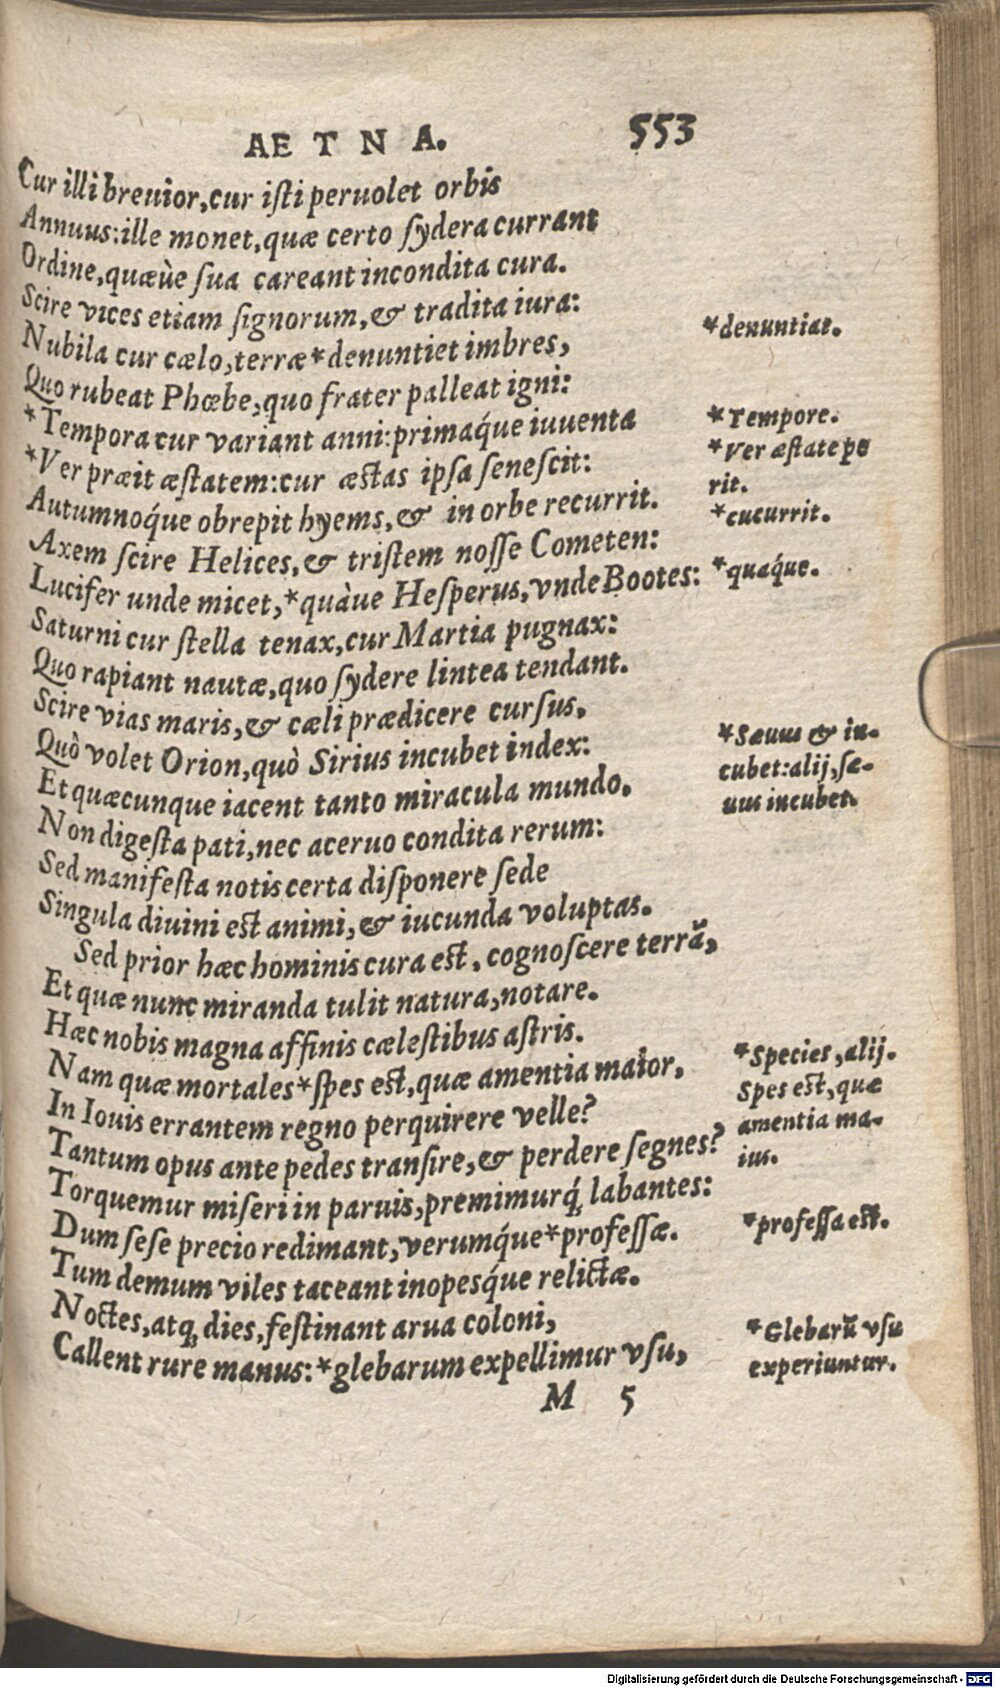 AETNA. 553
Cur illi breuior, cur iſti peruolet orbis
Annuus: ille monet, quæ certo ſydera currant
Ordine, quæùe ſua careant incondita cura.
Scire vices etiam ſignorum, & tradita iura:
Nubila cur cælo, terræ*denuntiet imbres,
*denuntiat.
Quo rubeat Phœbe, quo frater palleat igni:
*Tempora cur variant anni: primaq́ue iuuenta
*Tempore.
*Ver præit æſtatem: cur æſtas ipſa ſeneſcit:
*Ver æſtate pe
rit.
Autumnoq́ue obrepit hyems, & in orbe recurrit.
*cucurrit.
Axem ſcire Helices, & triſtem noſſe Cometen:
Lucifer unde micet,*quàue Heſperus, vnde Bootes:
*quaq́ue.
Saturni cur ſtella tenax, cur Martia pugnax:
Quo rapiant nautæ, quo ſydere lintea tendant.
Scire vias maris, & cæli prædicere curſus,
Quò volet Orion, quò Sirius incubet index:
*Sæuus & in-
cubet: alij, ſæ-
uus incubet.
Et quæcunque iacent tanto miracula mundo,
Non digeſta pati, nec aceruo condita rerum:
Sed manifeſta notis certa diſponere ſede
Singula diuini eſt animi, & iucunda voluptas.
Sed prior hæc hominis cura eſt, cognoſcere terrã,
Et quæ nunc miranda tulit natura, notare.
Hæc nobis magna affinis cæleſtibus aſtris.
Nam quæ mortales*ſpes eſt, quæ amentia maior,
*Species, alij.
Spes eſt, quæ
amentia ma-
ius.
In Iouis errantem regno perquirere velle?
Tantum opus ante pedes tranſire, & perdere ſegnes?
Torquemur miſeri in paruis, premimurq́; labantes:
Dum ſeſe precio redimant, verumq́ue*profeſſæ.
*profeſſa eſt.
Tum demum viles taceant inopesq́ue relictæ.
Noctes, atq; dies, feſtinant arua coloni,
Callent rure manus:*glebarum expellimur vſu,
*Glebarũ vſu
experiuntur.
M 5
Digitalisierung gefördert durch die Deutsche Forschungsgemeinschaft - DFG